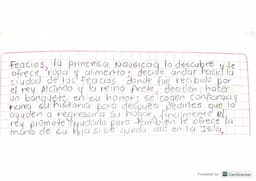 Feacios, la princesa Nausicaa lo descubre y le
ofrece ropa y alimento; decide andar hacia la
ciudad de los feacios donde fue recibido por
el rey Alcinoo y la reina Arete, deciden hacer
un banquete en su honor; se cogen confianza y
narra su historia para después pedirles que lo
ayuden a regresar a su hogar, finalmente el
rey promete ayudarlo pero también le ofrece la
mano de su hija si se queda allí en la Isla,
Powered by CamScanner